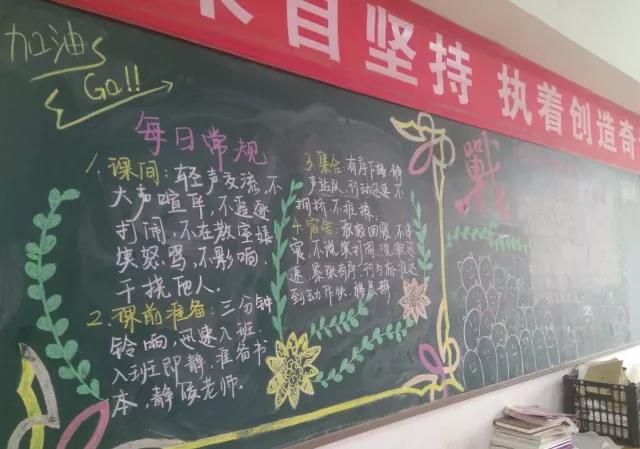 自坚持 执着创造奇
加油
Go!!
每日常规
1.课间:轻声交流,不
大声喧哗,不追逐
打闹,不在教室嬉
笑怒骂,不影响、
干扰他人.
2.课前准备:三分钟
铃响,迅速入班.
入班即静,准备书
本,静候老师.
3.集合:有序下楼,静
声站队,行动迅速,不
拥挤,不推搡.
4.宿舍:
寝,不说笑打闹,洗漱迅
速,紧张有序,行为标准达
到动作快,
戰